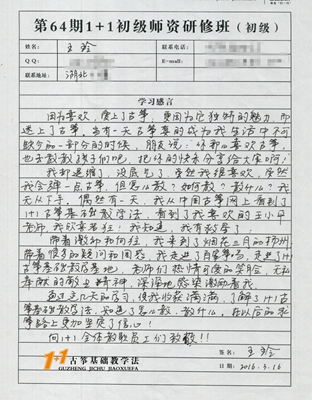 第64期1+1初级师资研修班（初级）
姓名： 王玲 联系电话：
QQ： E-mail：
联系地址： 湖北
学习感言
因为喜欢，爱上了古筝，更因为它独特的魅力，而
迷上了古筝，当有一天古筝真的成为我生活中不可
缺少的一部分的时候，朋友说：你那么喜欢古筝，
也去教教孩子们吧，把你的快乐分享给大家啊！
我却退缩了，没底气了，虽然我很喜欢，虽然
我会弹一点古筝，但怎么教？如何教？教什么？我
无从下手，偶然有一天，我从中国古筝网上看到了
1+1古筝基础教学法，看到了我喜欢的王小平
老师，我欣喜若狂！我知道，我有救啦！
带着激动和向往，我来到了烟花三月的扬州，
带着很多的疑问和困惑，我走进了，走进了1+1
古筝基础教学基地，老师们热情可爱的笑脸，无私
奉献的敬业精神，深深地感染激励着我。
通过几天的学习，使我收获满满，了解了1+1古
筝基础教学法，知道了怎么教，教什么，在以后的教
学路上更加坚定了信心！
向1+1全体教职员工们致敬！！
签名： 王玲
日期： 2016.3.16
1+1古筝基础教学法
GUZHENG JICHU JIAOXUEFA